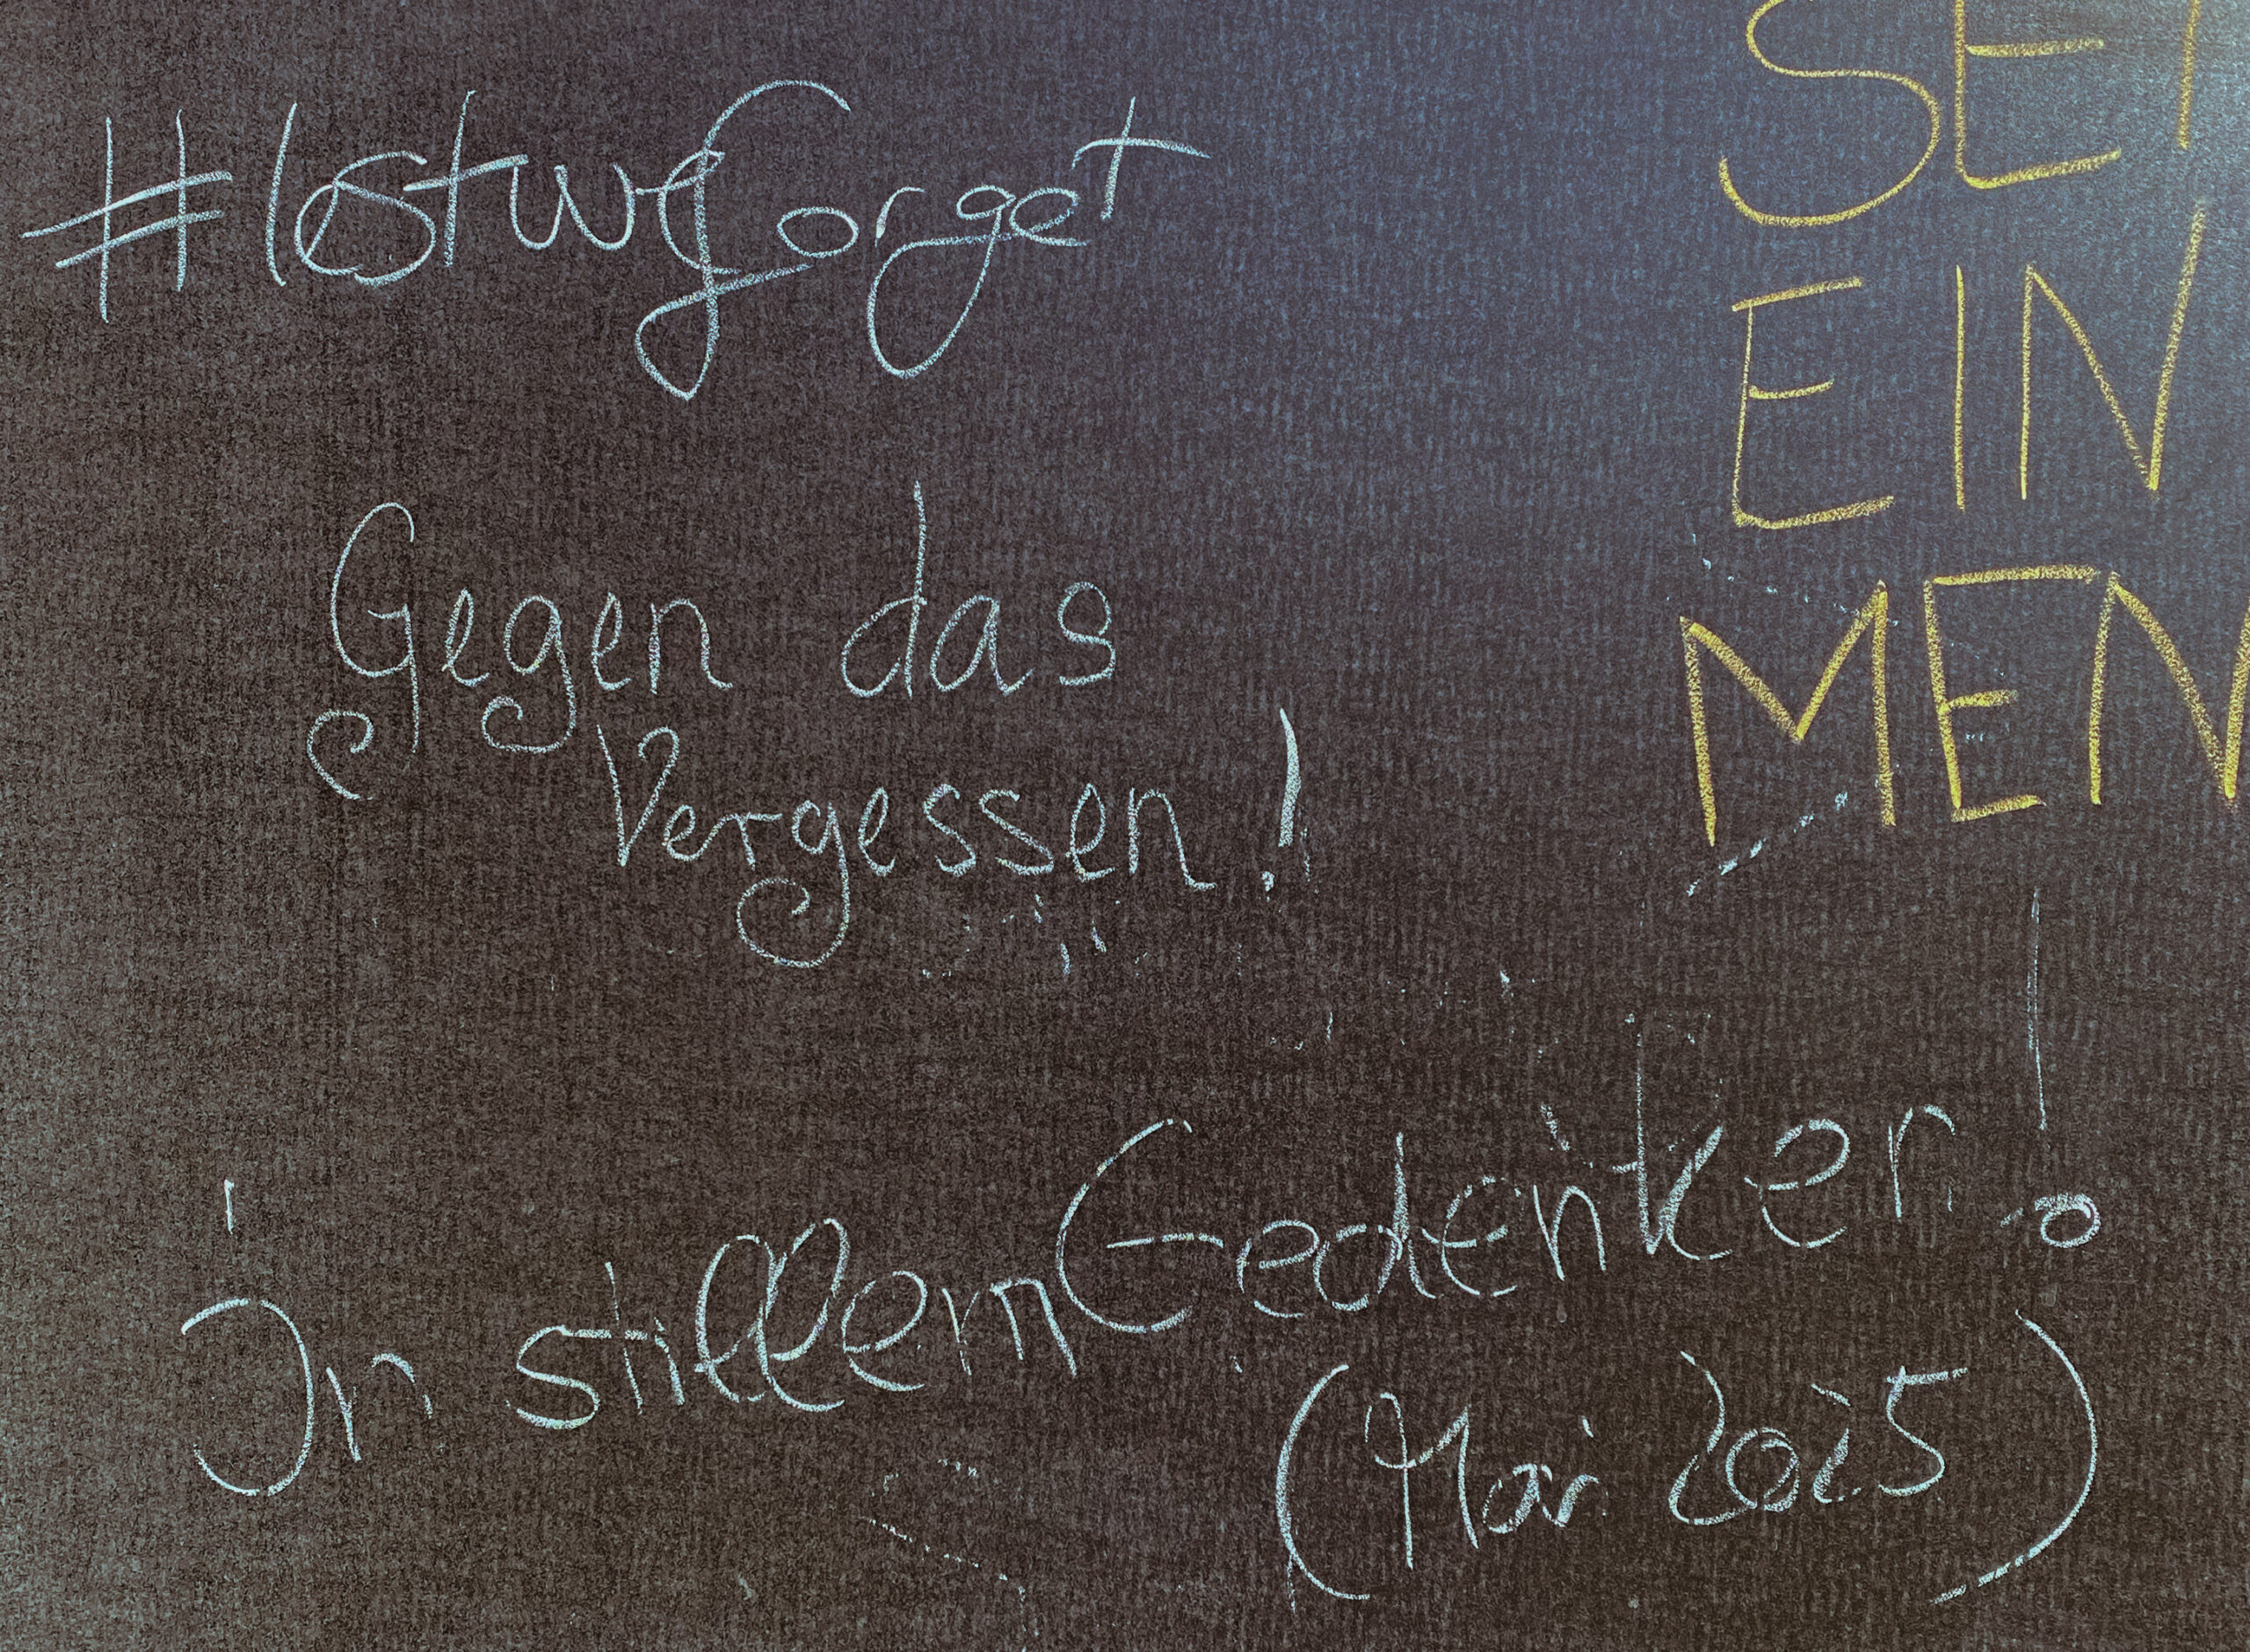 #lestweforget
Gegen das
Vergessen!
In stillem Gedenken!
(Mai 2025)
SEI
EIN
MEN